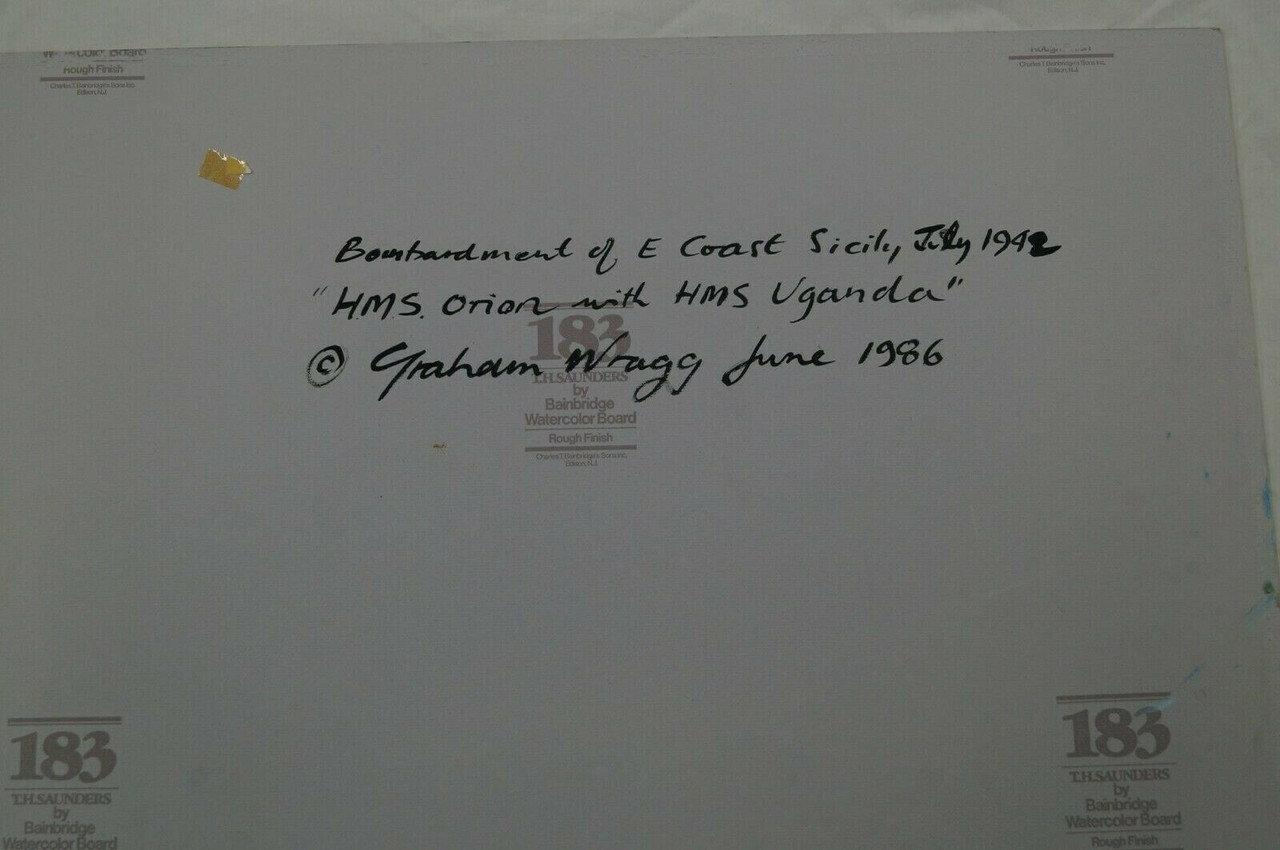 Rough Finish
Charles T. Bainbridge's Sons Inc.
Edison, N.J.
Charles T. Bainbridge's Sons Inc.
Edison, N.J.
Bombardment of E Coast Sicily, July 1942
"H.M.S. Orion with HMS Uganda"
© Graham Wragg June 1986
183
T.H.SAUNDERS
by
Bainbridge
Watercolor Board
Rough Finish
Charles T. Bainbridge's Sons Inc.
Edison, N.J.
183
T.H.SAUNDERS
by
Bainbridge
Watercolor Board
183
T.H.SAUNDERS
by
Bainbridge
Watercolor Board
Rough Finish